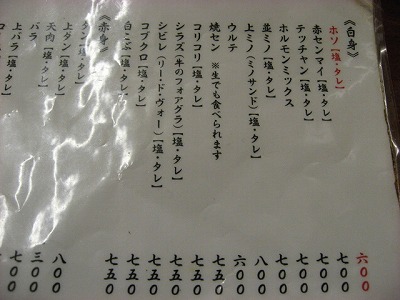 《白身》
ホソ【塩・タレ】 六〇〇
赤センマイ【塩・タレ】 七〇〇
テッチャン【塩・タレ】 七〇〇
ホルモンミックス 七〇〇
並ミノ【塩・タレ】 七〇〇
上ミノ(ミノサンド)【塩・タレ】 八〇〇
ウルテ 六〇〇
焼セン ※生でも食べられます 七五〇
コリコリ【塩・タレ】 七五〇
シラズ(牛のフォアグラ)【塩・タレ】 七五〇
シビレ(リー・ド・ヴォー)【塩・タレ】 七五〇
コブクロ【塩・タレ】 七五〇
白こぶ【塩・タレ】 七五〇
《赤身》
タン【塩・タレ】 八〇〇
上タン【塩・タレ】 三〇〇
天肉【塩・タレ】 七〇〇
バラ
上バラ【塩・タレ】